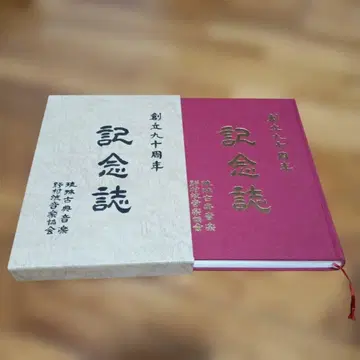 創立九十周年
記念誌
琉球古典音楽
野村流音楽協会
創立九十周年
記念誌
琉球古典音楽
野村流音楽協会